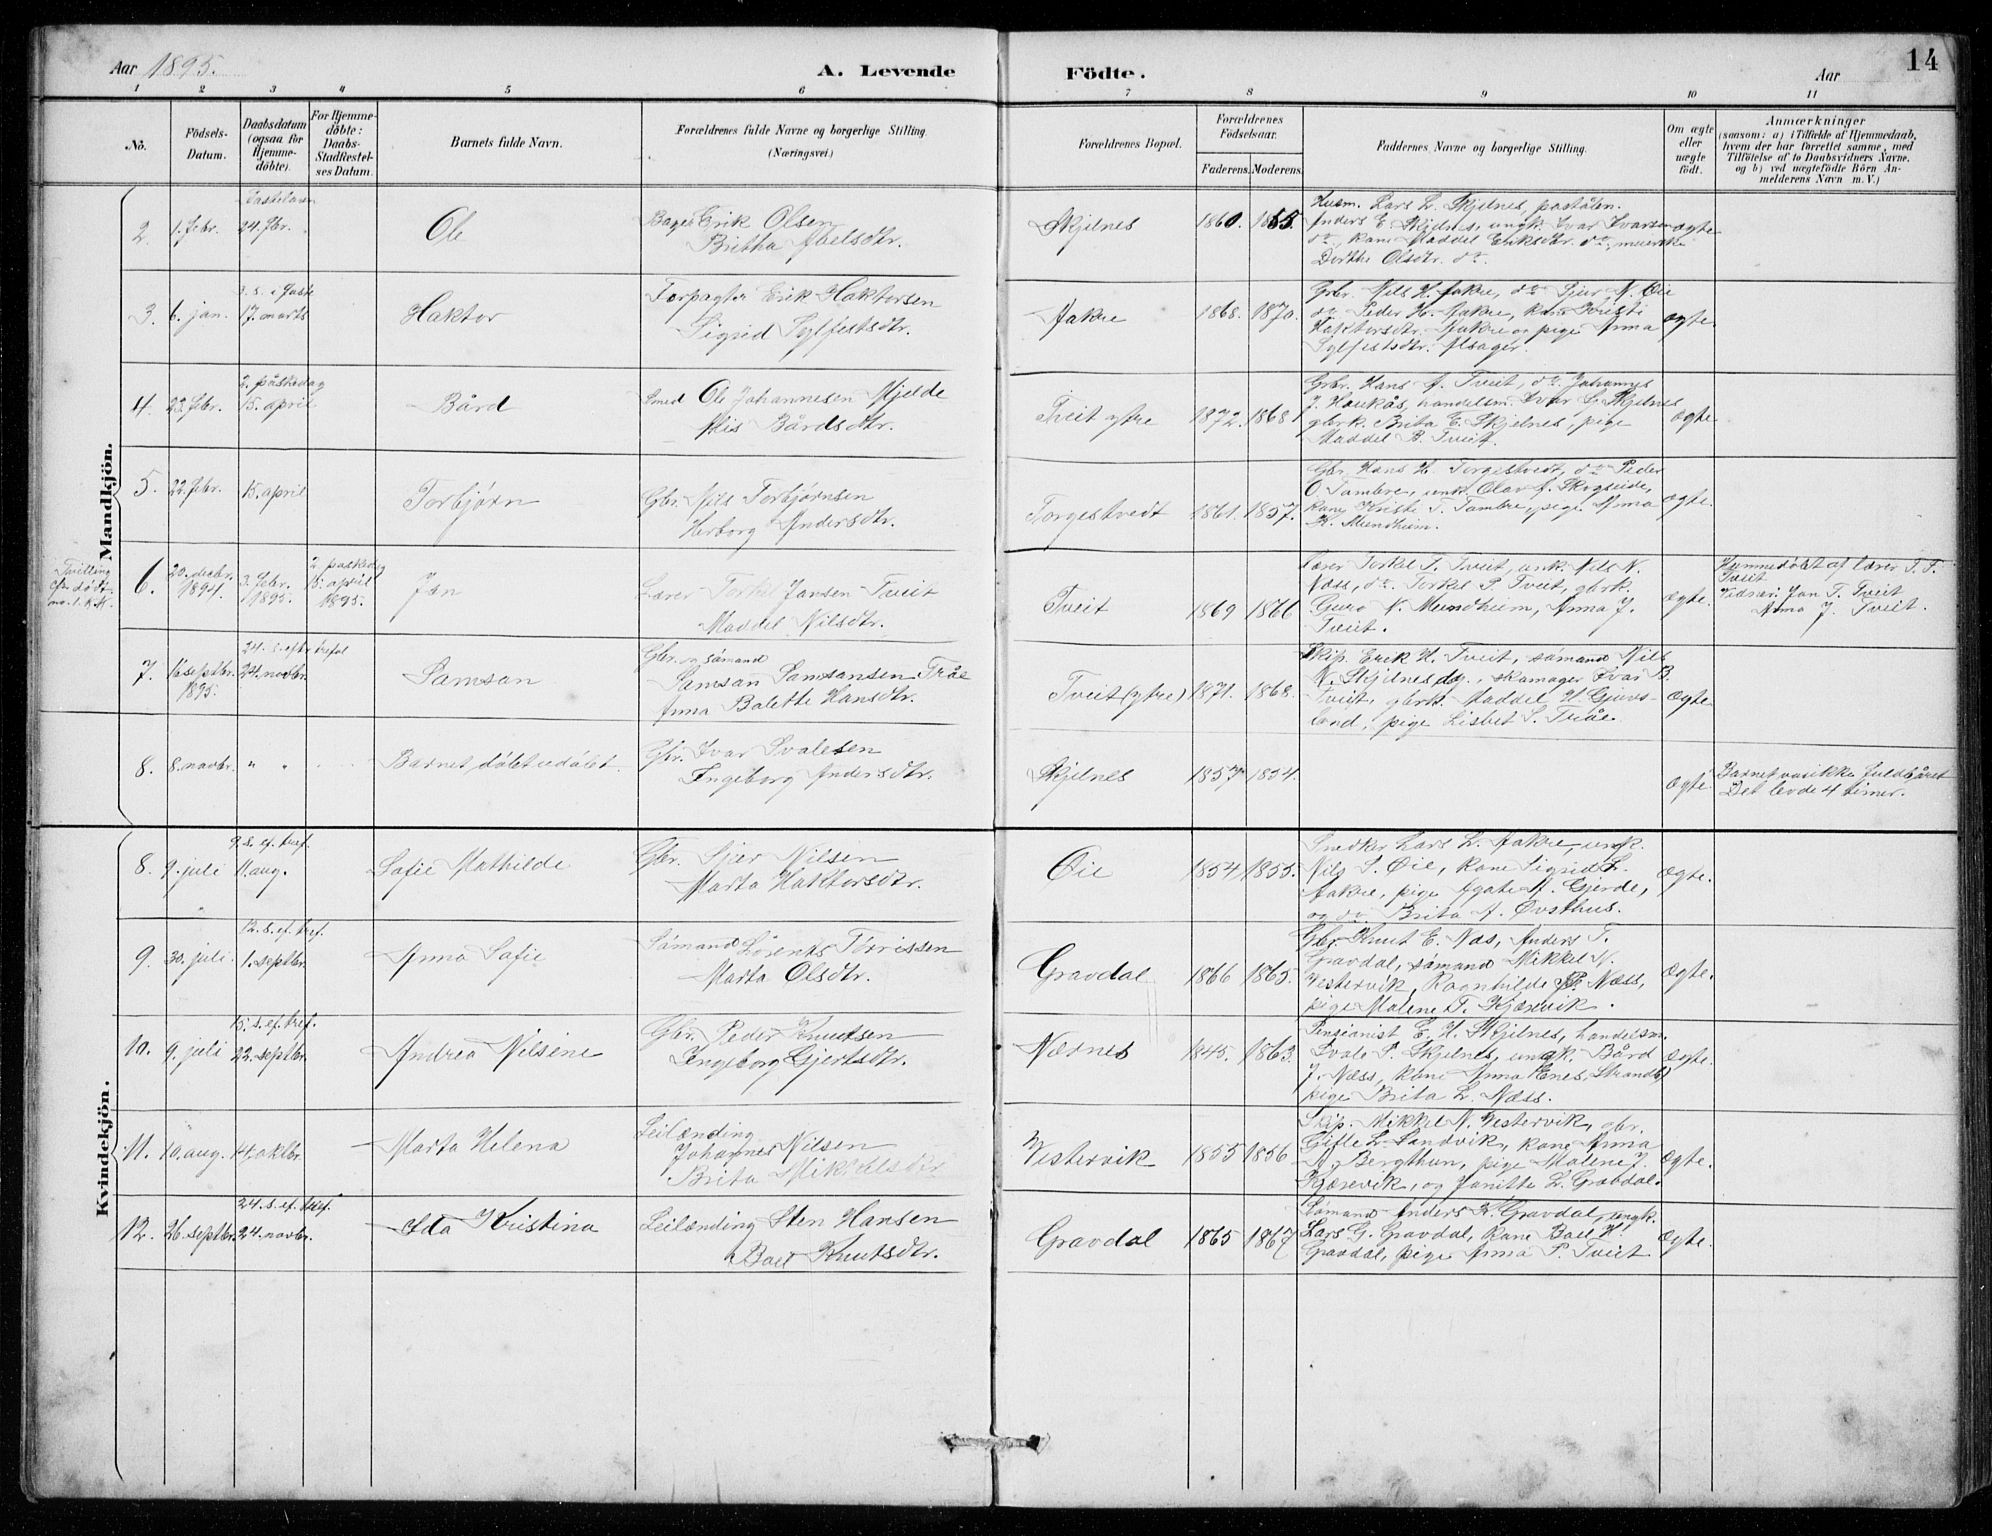 Aar 1895.
A. Levende Födte.
Aar
14
1 2 3 4 5 6 7 8 9 10 11
No.
Födsels-
Datum.
Daabsdatum
(ogsaa for
Hjemme-
døbte).
For Hjemme-
døbte:
Daabs-
Stadfæstel-
ses Datum.
Barnets fulde Navn.
Forældrenes fulde Navne og borgerlige Stilling.
(Næringsvei.)
Forældrenes Bopæl.
Forældrenes
Födselsaar.
Faderens. Moderens.
Faddernes Navne og borgerlige Stilling.
Om ægte
eller
uægte
født.
Anmærkninger
(saasom: a) i Tilfælde af Hjemmedaab,
hvem der har forrettet samme, med
Tilföielse af to Daabsvidners Navne.
og b) ved uægtefödte Börn An-
melderens Navn m. V.)
Mandkjön.
2. 1. febr. 24. fbr. Ole
Erik Olsen
Britha Abelsdtr.
Skjelnes 1860. 1855.
Husm. Lars L. Skjelnes,
Anders E. Skjelnes, ungk. Ivar Ivarsen
do, kone Maddel Eriksdtr. do,
Dorthe Olsdtr. do.
ægte
3. s. i faste
3. 6. jan. 17. marts Haktor
Forpagter Erik Haktorsen
Sigrid Sylfestsdtr.
Aakre 1868. 1870.
Gbr. Nils H. Aakre, do Sjur N. Øie
do Peder H. Aakre, kone Kristi
Haktorsdtr. Aakre og pige Anna
Sylfestsdtr. Alsager.
ægte.
2. påskedag
4. 23. febr. 15. april Bård
Smed Ole Johannesen Mjelde
Alis Bårdsdtr.
Tveit ytre 1872. 1868
Gbr. Hans A. Tveit, do. Johannes
J. Haukås, handelsm. Ivar S. Skjelnes
gbrk. Brita E. Skjelnes, pige
Maddel B. Tveit.
ægte
5. 22. febr. 15. april Torbjørn
Gbr. Nils Torbjørnsen
Herborg Andersdtr.
Torgestvedt 1861. 1857.
Gbr. Hans H. Torgestvedt, do Peder
O. Tambre, unk. Olav A. Skogseide,
kone Kristi T. Tambre, pige Anna
K. Mundheim.
ægte.
Tvilling
6. 20. decbr. 1894. 3. febr. 1895. 2. påskedag 15. april 1895. Jan
Lærer Torkel Jansen Tveit
Maddel Nilsdtr.
Tveit 1869 1866
Lærer Torkel T. Tveit, unk. Nils N.
Næss, do. Torkel P. Tveit, gbrk.
Guro N. Mundheim, Anna J.
Tveit.
ægte.
Hjemmedøbt af lærer T. T.
Tveit
Vidner: Jan T. Tveit
Anna J. Tveit.
24. s. efter trefol
7. 16 septbr. 1895. 24. novbr. Samson
Gbr. og sømand
Samson Samsonsen Tråe
Anna Balette Hansdtr.
Tveit (ytre) 1871. 1868.
Skip. Erik H. Tveit, sømand Nils
N. Skjelnes, skomager Ivar B.
Tveit, gbrk. Maddel H. Gjuvs-
land, pige Lisbet S. Tråe.
ægte
8. 8. novbr. " " Barnet døbt udøbt.
Gbr. Ivar Svalesen
Ingeborg Andersdtr.
Skjelnes 1857 1854.
ægte
Barnet var ikke fuldbåret
Det levde 4 timer.
Kvindekjön.
9. s. ef. tref.
8. 9. juli 11. aug. Sofie Mathilde
Gbr. Sjur Nilsen
Marta Haktorsdtr.
Øie 1854 1855.
Snedker Lars L. Aakre, ungk.
Nils S. Øie, kone Sigrid L.
Aakre, pige Agate N. Gjerde,
og do. Brita A. Øvsthus.
ægte.
12. s. ef. tref.
9. 30. juli. 1. septbr. Anna Sofie
Sømand Lorents Tørrissen
Marta Olsdtr.
Gravdal 1866 1865.
Gbr. Knut E. Næs, Anders T.
Gravdal, sømand Mikkel N.
Vestervik, Ragnhilde P. Næss,
pige Malene T. Kjærevik.
ægte.
15. s. ef. tref.
10. 9. juli 22. septbr. Andrea Nilsine
Gbr. Peder Knutsen
Ingeborg Gjertsdtr.
Nærnes 1845. 1863.
Pensionist E. H. Skjelnes, handelsm.
Svale P. Skjelnes, ungk. Bård
J. Næss, kone Anna Enes,
pige Brita L. Næss.
ægte.
11. 10. aug. 14. oktbr. Marta Helena
Leilænding
Johannes Nilsen
Brita Mikkelsdtr.
Vestervik 1855 1856
Skip. Mikkel N. Vestervik, gbr.
L. Sandvik, kone Anna
Bergthun, pige Malene J.
Kjærevik, og Janitte L. Gravdal.
ægte.
24. s. ef. tref.
12. 26. septbr. 24. novbr. Ida Kristina
Leilænding Sten Hansen
Boel Knutsdtr.
Gravdal 1865 1867
Sømand Anders K. Gravdal, ungk.
Lars G. Gravdal, kone Boel H.
Gravdal, pige Anna P. Tveit
ægte.